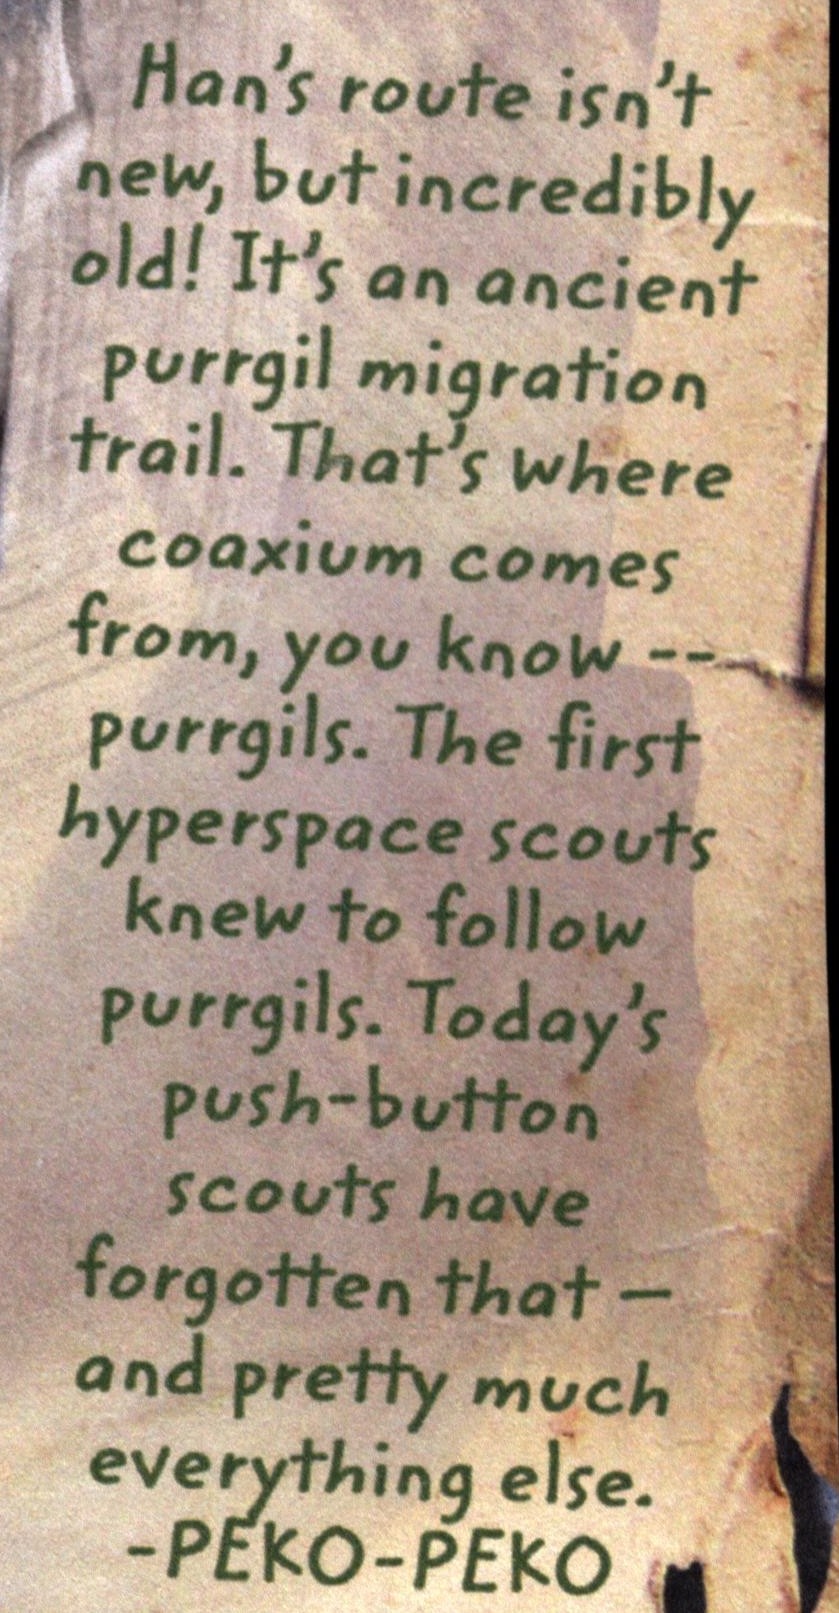 Han's route isn't
new, but incredibly
old! It's an ancient
purrgil migration
trail. That's where
coaxium comes
from, you know --
purrgils. The first
hyperspace scouts
knew to follow
purrgils. Today's
push-button
scouts have
forgotten that —
and pretty much
everything else.
-PEKO-PEKO